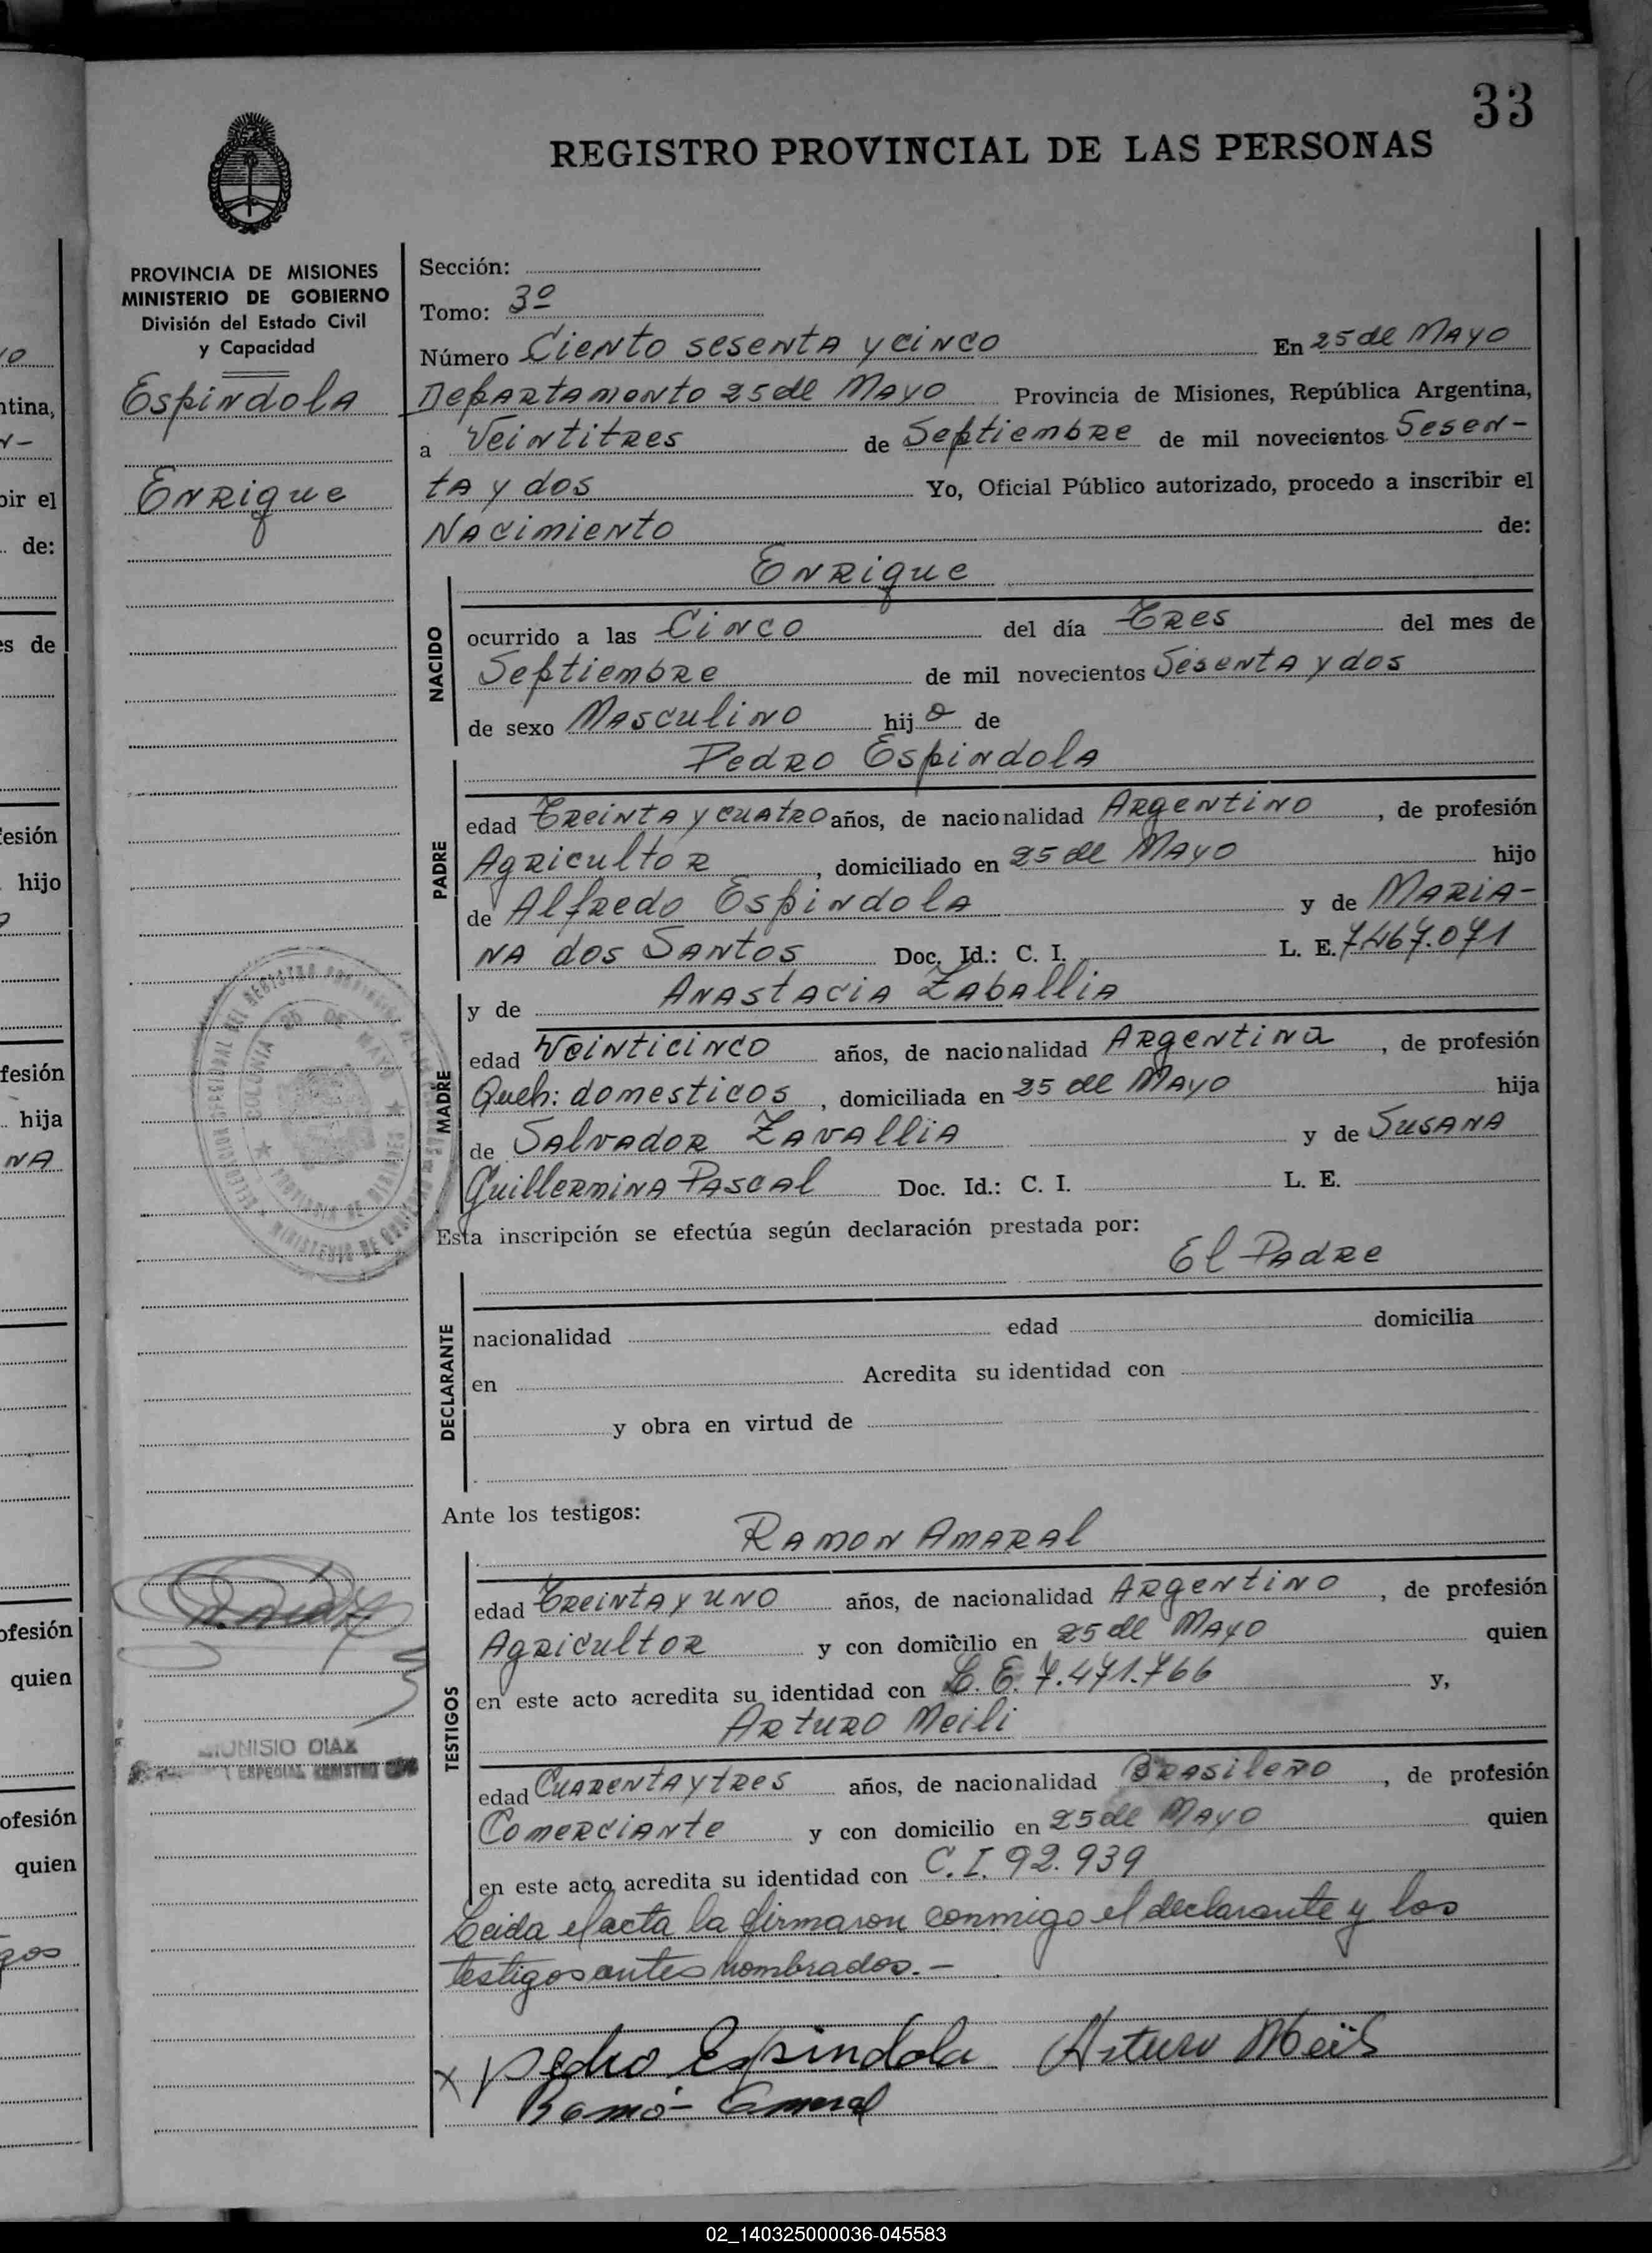 33
REGISTRO PROVINCIAL DE LAS PERSONAS
PROVINCIA DE MISIONES
MINISTERIO DE GOBIERNO
División del Estado Civil
y Capacidad
Espindola
Enrique
Sección:
Tomo: 3º
Número Ciento sesenta y cinco En 25 de Mayo
Departamento 25 de Mayo Provincia de Misiones, República Argentina,
a Veintitres de Septiembre de mil novecientos Sesen-
ta y dos Yo, Oficial Público autorizado, procedo a inscribir el
Nacimiento de:
Enrique
NACIDO
ocurrido a las Cinco del día Tres del mes de
Septiembre de mil novecientos Sesenta y dos
de sexo Masculino hijo de
Pedro Espindola
PADRE
edad Treinta y cuatro años, de nacionalidad Argentino, de profesión
Agricultor, domiciliado en 25 de Mayo hijo
de Alfredo Espindola y de Maria-
na dos Santos Doc. Id.: C. I. L. E. 7.467.071
y de Anastacia Zaballia
MADRE
edad Veinticinco años, de nacionalidad Argentina, de profesión
Queh: domesticos, domiciliada en 25 de Mayo hija
de Salvador Zavallia y de Susana
Guillermina Pascal Doc. Id.: C. I. L. E.
Esta inscripción se efectúa según declaración prestada por:
El Padre
DECLARANTE
nacionalidad edad domicilia
en Acredita su identidad con
y obra en virtud de
Ante los testigos:
Ramon Amaral
TESTIGOS
edad Treinta y uno años, de nacionalidad Argentino, de profesión
Agricultor y con domicilio en 25 de Mayo quien
en este acto acredita su identidad con L. E. 7.471.766 y,
Arturo Meili
edad Cuarenta y tres años, de nacionalidad Brasileño, de profesión
Comerciante y con domicilio en 25 de Mayo quien
en este acto acredita su identidad con C. I. 92.939
Leida el acta la firmaron conmigo el declarante y los
testigos antes nombrados.-
x Pedro Espindola Arturo Meili
Ramó- Ameral
COLONIA 25 DE MAYO
PROVINCIA DE MISIONES
MINISTERIO DE GOBIERNO
DIONISIO DIAZ
02_140325000036-045583